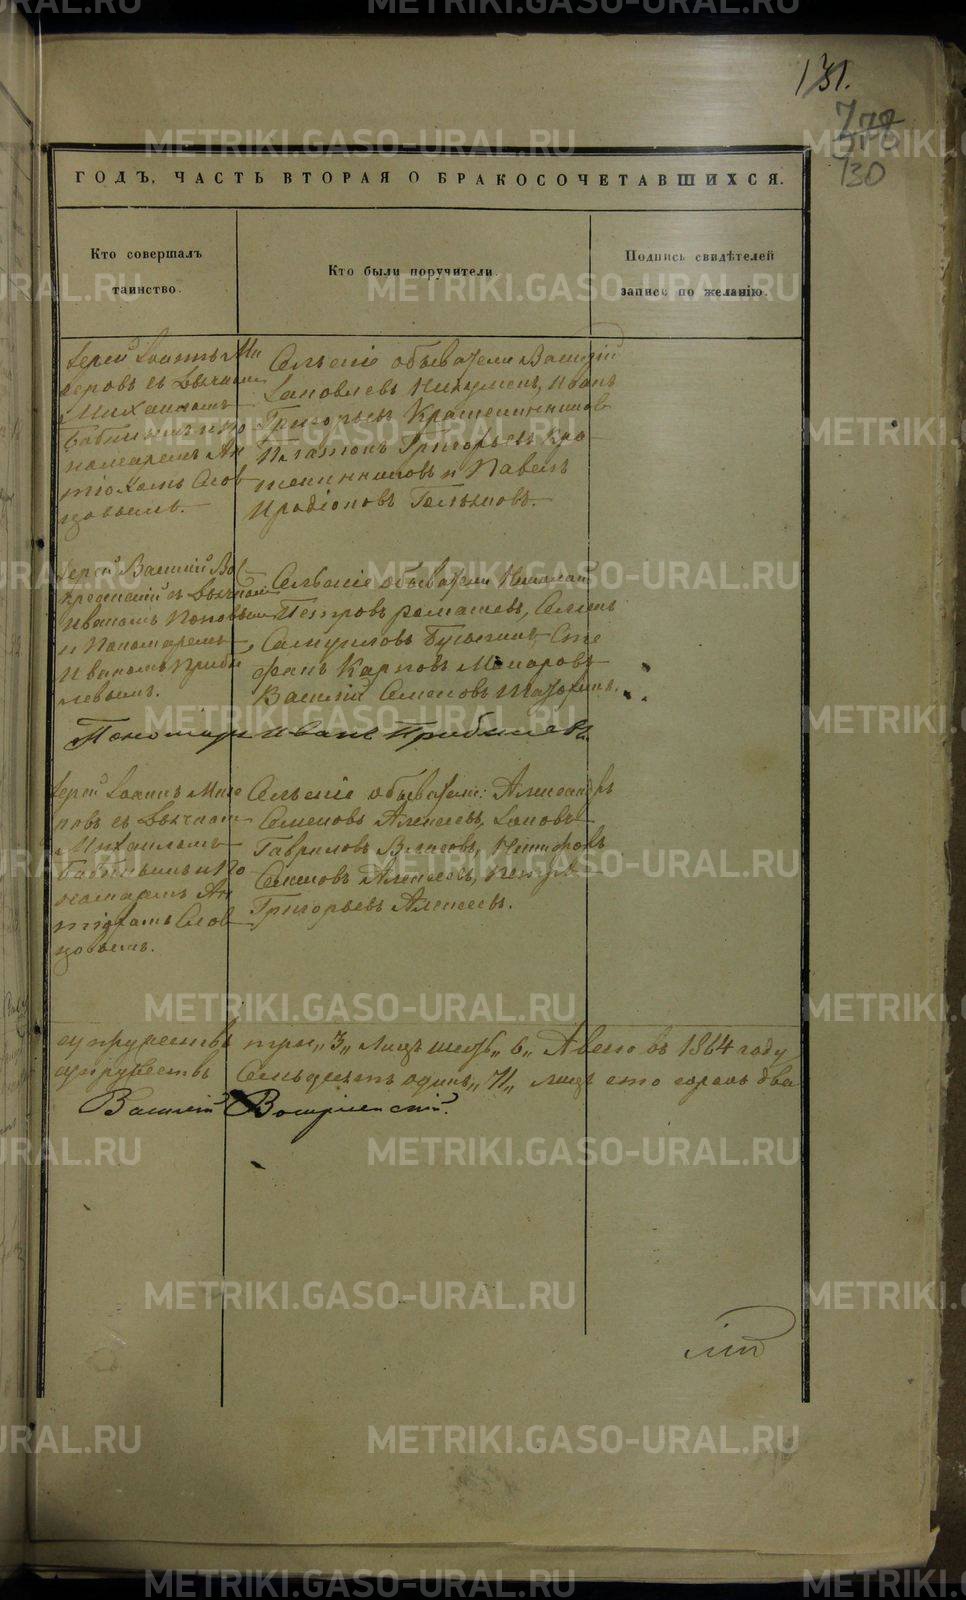 131.
778
130
ГОДЪ, ЧАСТЬ ВТОРАЯ О БРАКОСОЧЕТАВШИХСЯ.
Кто совершалъ
таинство.
Кто были поручители.
Подпись свидѣтелей
записи по желанію.
Іерей Іоаннъ
Михаиломъ
Бабинымъ и по
номаремъ Ан
тіохомъ Слов
цовымъ.
Сельскіе обыватели Василій
Яковлевъ Иванъ
Григорьевъ Крашенинниковъ
Платонъ Григорьевъ Кра
шенинниковъ и Павелъ
Иродіоновъ
Іерей Василій Вос
кресенскій съ Дьячкомъ
Иваномъ Поповымъ
и Пономаремъ
Иваномъ Приби
левымъ.
Сельскіе обыватели Николай
Петровъ Ромашевъ,
Самуиловъ Сте
фанъ Карповъ Макаровъ
Василій Семеновъ
Пономарь Иванъ Прибылевъ.
Іерей Іоаннъ
съ Дьячкомъ
Михаиломъ
Бабинымъ и По
номаремъ Ан
тіохомъ Слов
цовымъ.
Сельскіе обыватели: Александръ
Семеновъ Алексеевъ, Яковъ
Гавриловъ Власовъ, Никифоръ
Семеновъ Алексеевъ, Петръ
Григорьевъ Алексеевъ.
супружествъ три „3„ лицъ шесть „6„ А всего въ 1864 году
супружествъ семьдесятъ одинъ „71„ лицъ сто сорокъ два
Василій Воскресенскій.
METRIKI.GASO-URAL.RU